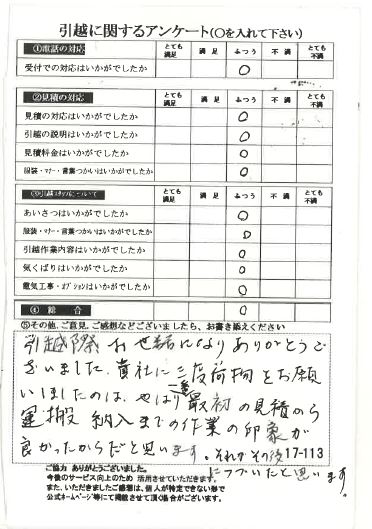 引越に関するアンケート(○を入れて下さい)
①電話の対応 とても満足 満足 ふつう 不満 とても不満
受付での対応はいかがでしたか ○
②見積の対応 とても満足 満足 ふつう 不満 とても不満
見積の対応はいかがでしたか ○
引越の説明はいかがでしたか ○
見積料金はいかがでしたか ○
服装・マナー・言葉つかいはいかがでしたか ○
③引越 について とても満足 満足 ふつう 不満 とても不満
あいさつはいかがでしたか ○
服装・マナー・言葉つかいはいかがでしたか ○
引越作業内容はいかがでしたか ○
気くばりはいかがでしたか ○
電気工事・オプションはいかがでしたか ○
④ 総合 ○
⑤その他、ご意見、ご感想などございましたら、お書き添えください
引越際お世話になりありがとうご
ざいました。貴社に二度荷物をお願
いしましたのは、やはり最初の見積から
運搬 納入までの作業の印象が
良かったからだと思います。それがその後
17-113
につづいたと思います。
ご協力 ありがとうございました。
今後のサービス向上のため 活用させていただきます。
また、いただきましたご感想は、個人が特定できない形で
公式ホームページ等にて掲載させて頂く場合がございます。